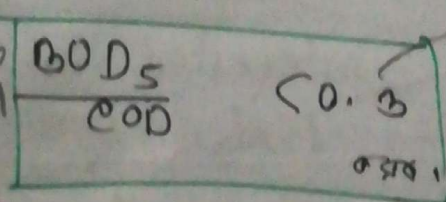 BOD5
COD <0.3